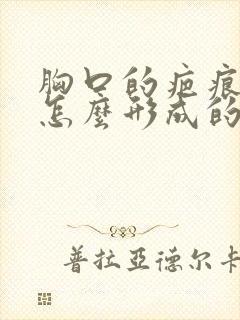 胸口的疤痕
怎麼形成的
普拉亞德尔卡